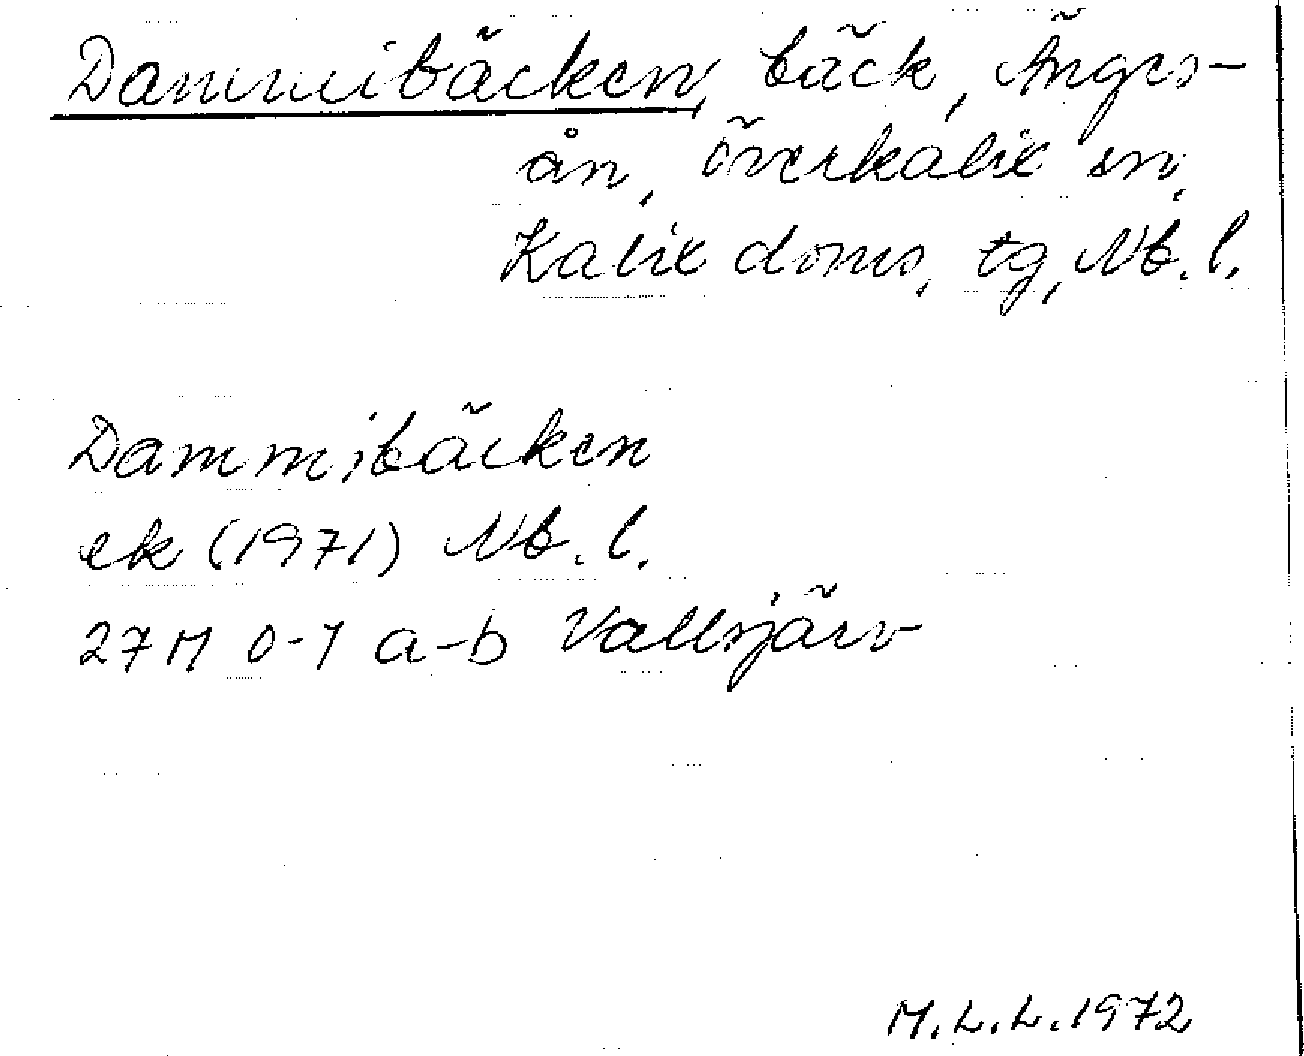 Dammibäcken, bäck, Änges-
ån, Överkalix sn,
Kalix doms, tg, Nb. l.
Dammibäcken
ek (1971) Nb. l.
27M 0-1 a-b Vallsjärv
M.L.L. 1972